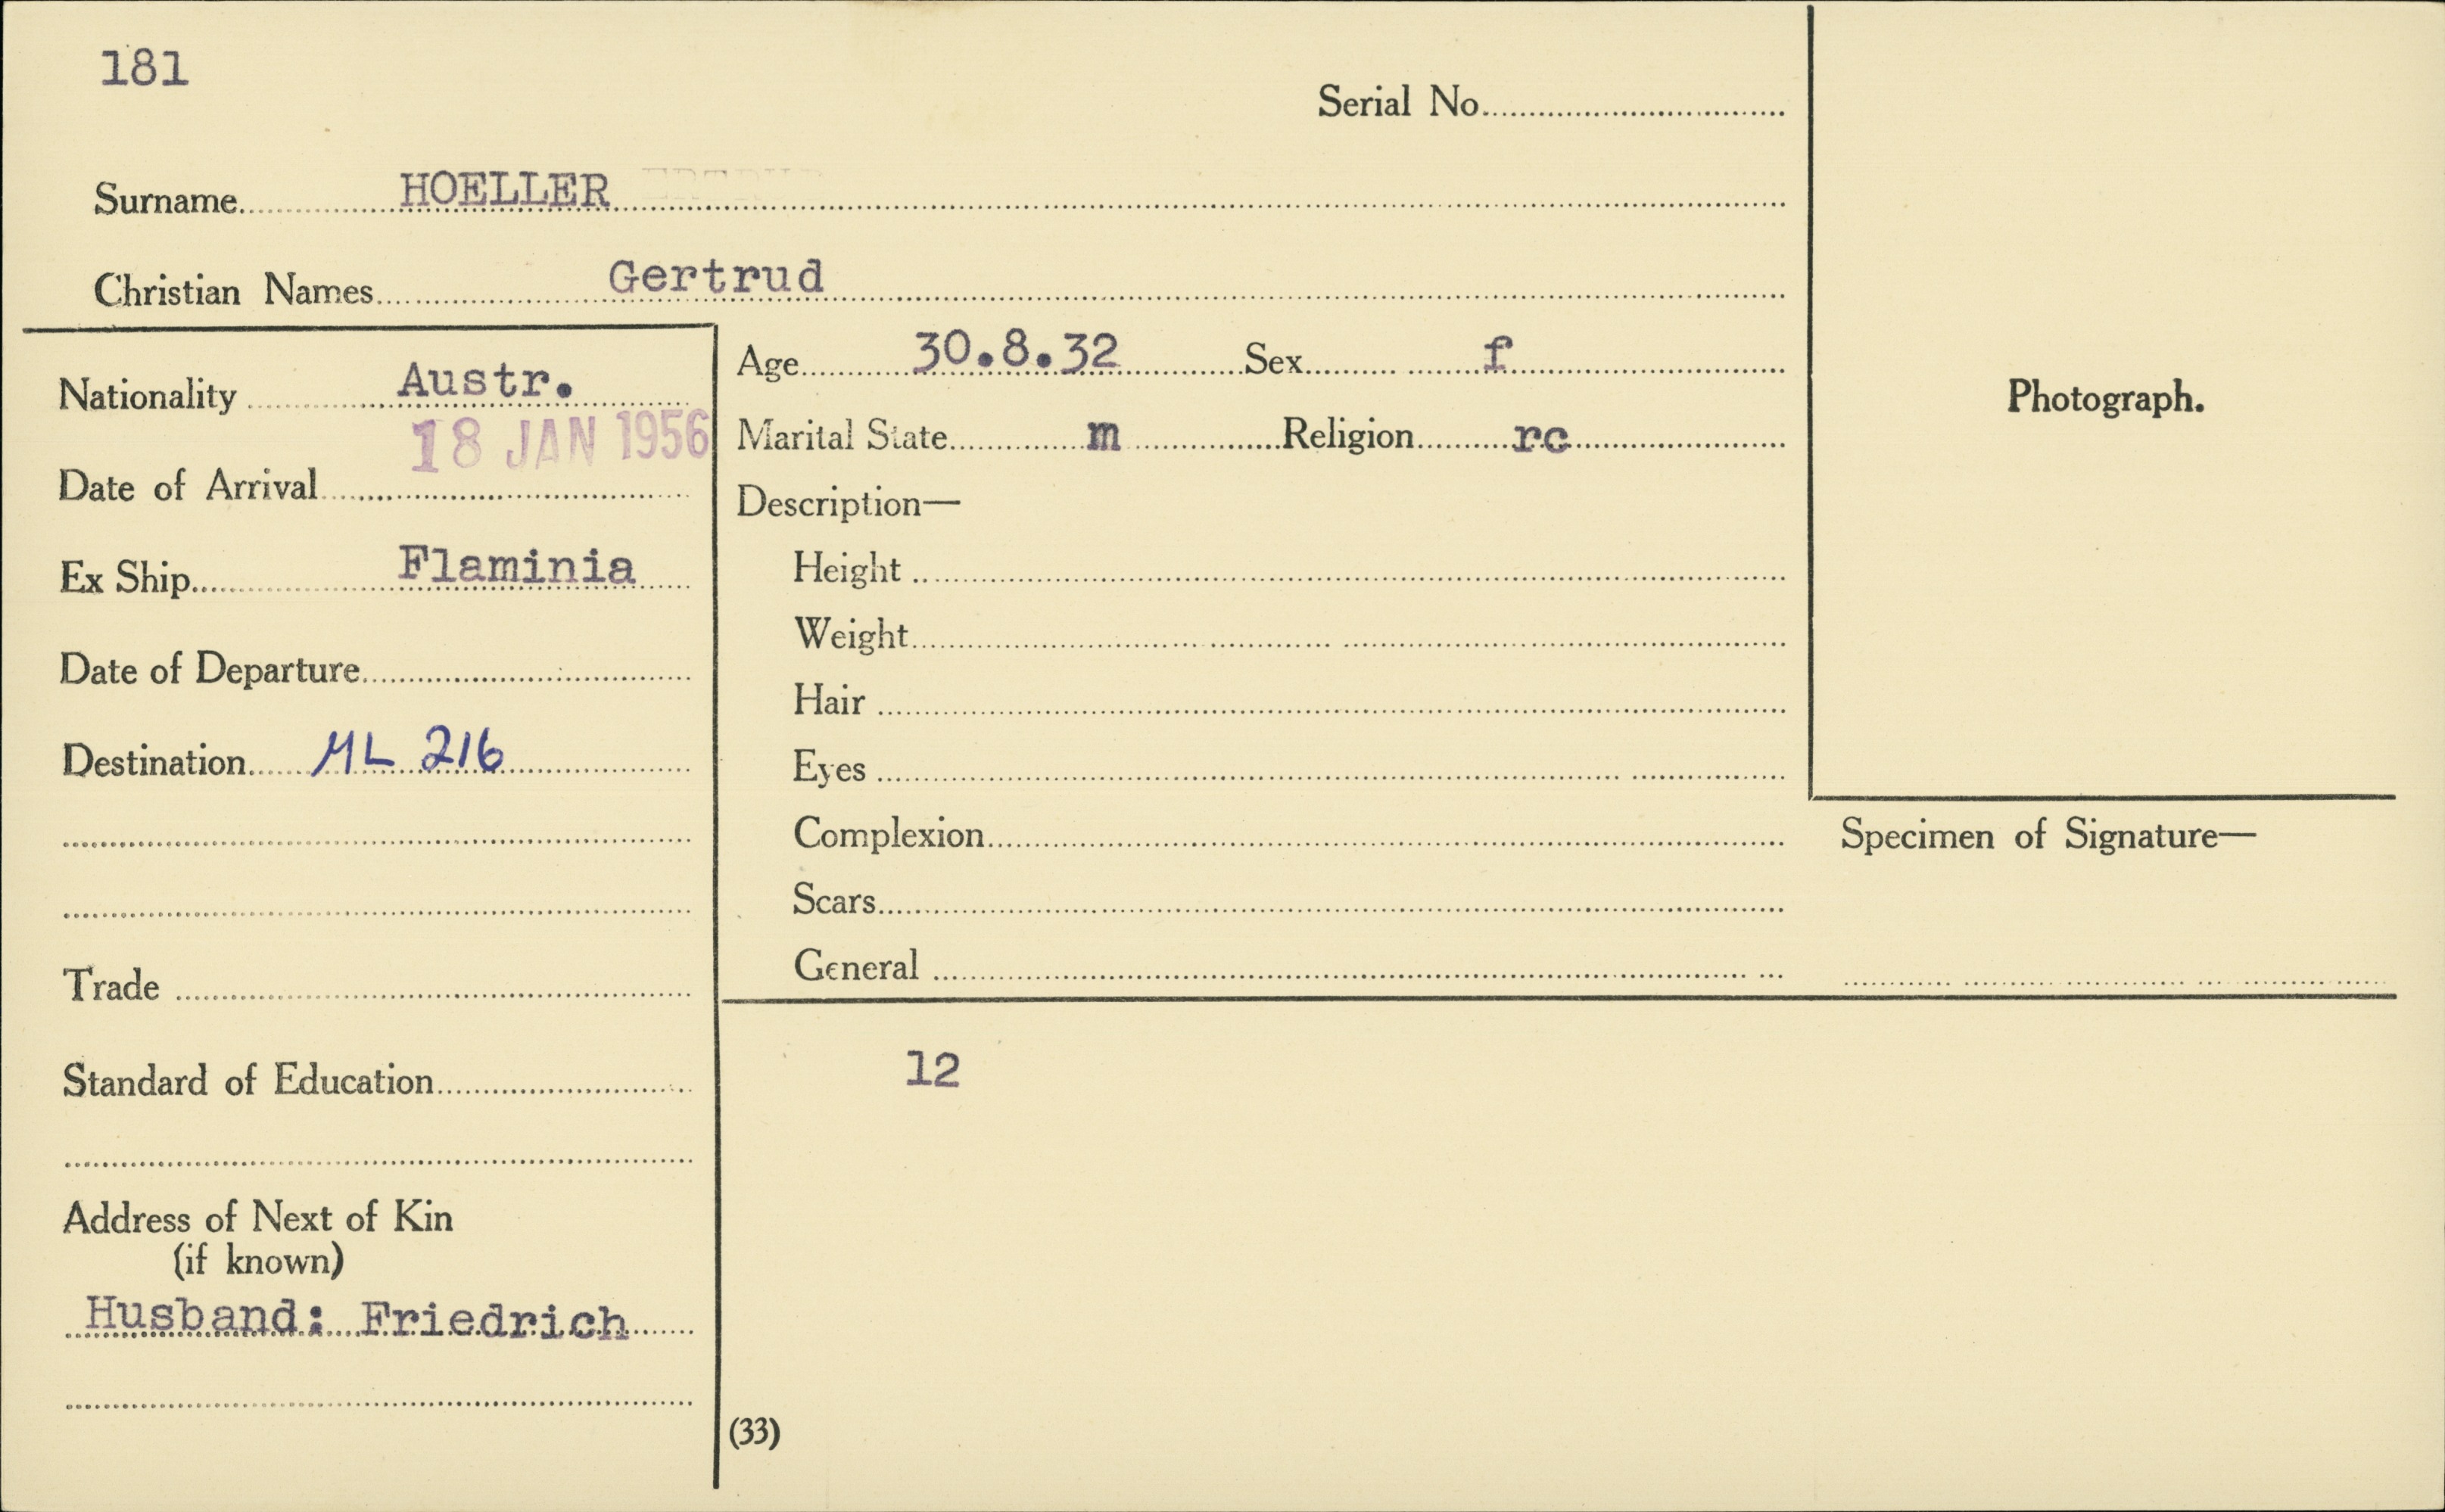 181
Serial No
Surname HOELLER
Christian Names Gertrud
Nationality Austr.
18 JAN 1956
Date of Arrival
Ex Ship Flaminia
Date of Departure
Destination ML 216
Trade
Standard of Education
Address of Next of Kin
(if known)
Husband: Friedrich
Age 30.8.32 Sex f
Marital State m Religion rc
Description—
Height
Weight
Hair
Eyes
Complexion
Scars
General
12
(33)
Photograph.
Specimen of Signature—